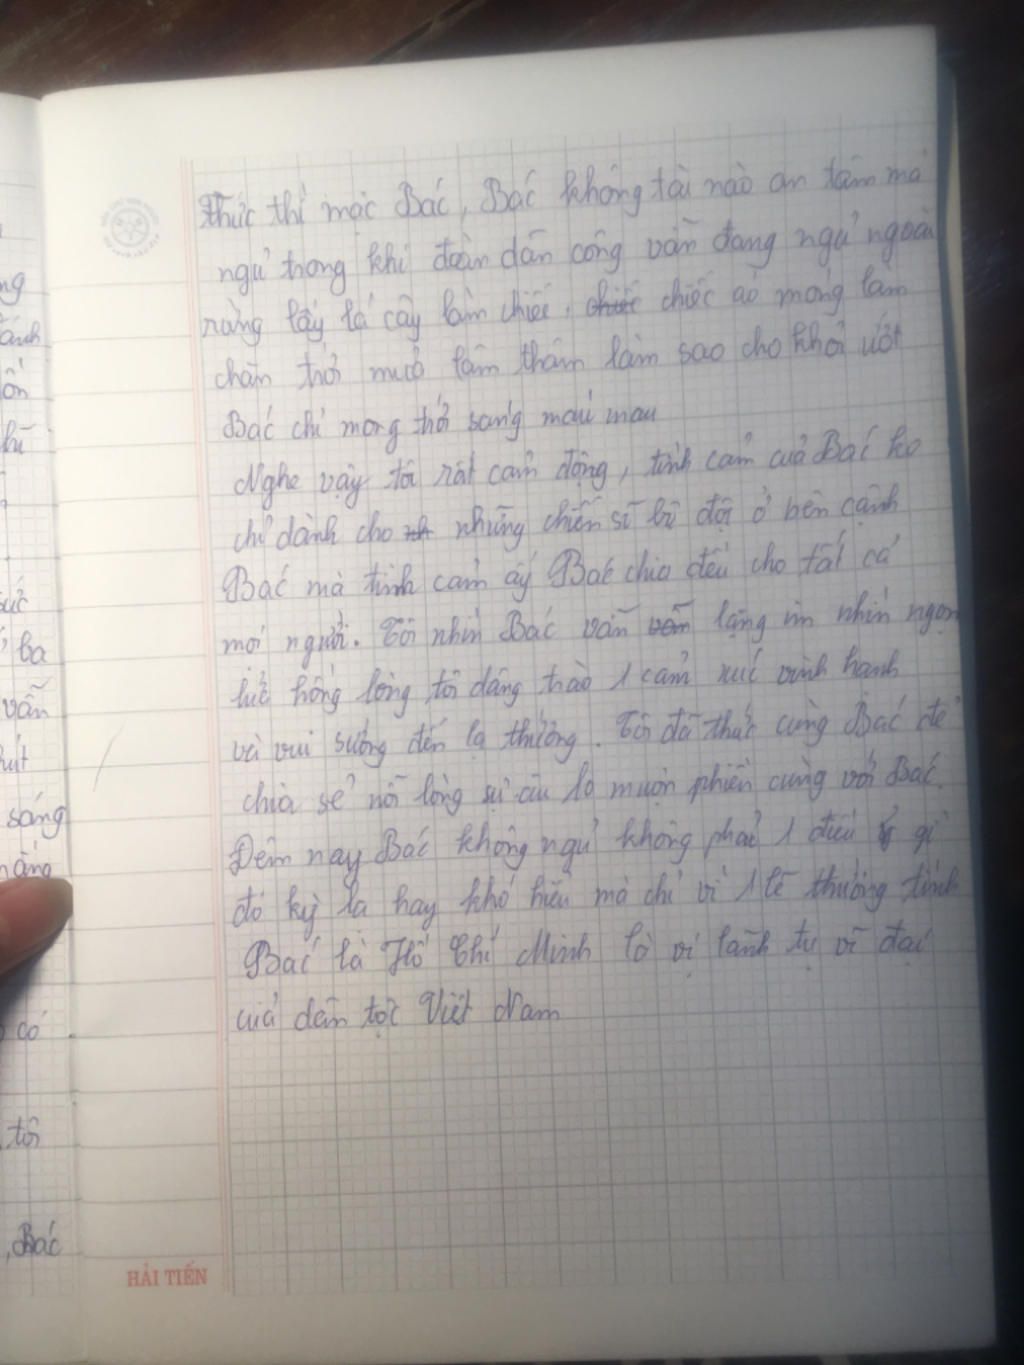 thức thì mặc Bác, Bác không tài nào an tâm mà
ngủ trong khi đoàn dân công vẫn đang ngủ ngoài
rừng lấy lá cây làm chiếu, chiếc chiếc áo mỏng làm
chăn trời mưa lâm thâm làm sao cho khỏi ướt
Bác chỉ mong trời sáng mau mau
Nghe vậy tôi rất cảm động, tình cảm của Bác ko
chỉ dành cho những chiến sĩ bộ đội ở bên cạnh
Bác mà tình cảm ấy Bác chia đều cho tất cả
mọi người. Tôi nhìn Bác vẫn vẫn lặng im nhìn ngọn
lửa hồng lòng tôi dâng trào 1 cảm xúc vinh hạnh
và vui sướng đến lạ thường. Tôi đã thức cùng Bác để
chia sẻ nỗi lòng sự âu lo muộn phiền cùng với Bác.
Đêm nay Bác không ngủ không phải 1 điều gì
đó kỳ lạ hay khó hiểu mà chỉ vì 1 lẽ thường tình
Bác là Hồ Chí Minh là vị lãnh tụ vĩ đại
của dân tộc Việt Nam
HẢI TIẾN
ng
ba
vẫn
sáng
có
tôi
, Bác